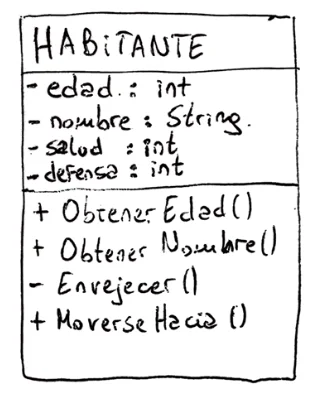 HABiTANTE
- edad : int
- nombre : String.
- salud : int
- defensa : int
+ Obtener Edad ()
+ Obtener Nombre ()
- Envejecer ()
+ Moverse Hacia ()